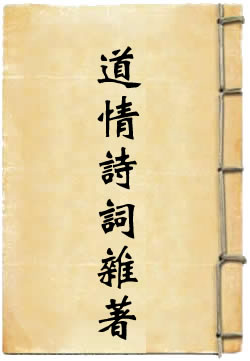 道情詩詞雜著